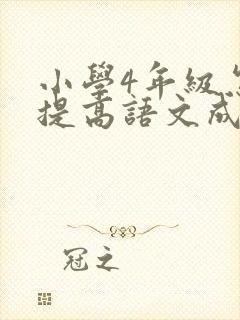 小學4年級
提高語文成
冠之